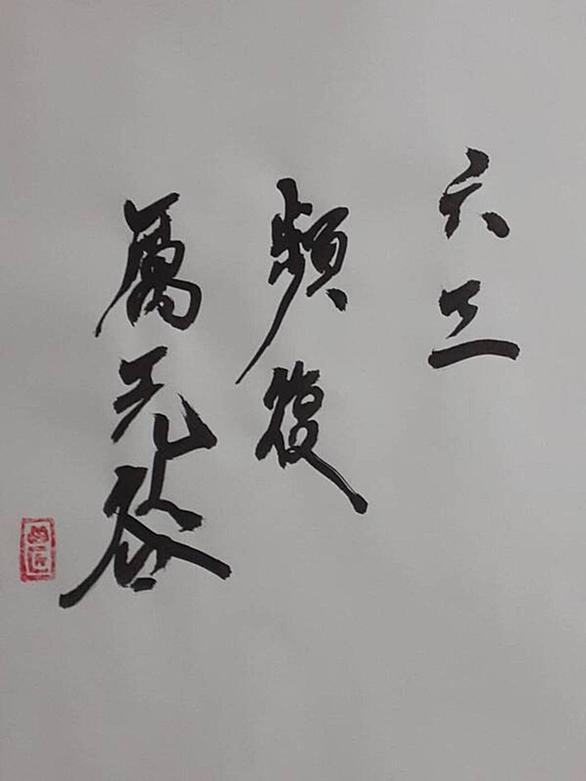 六三
頻復
厲无咎